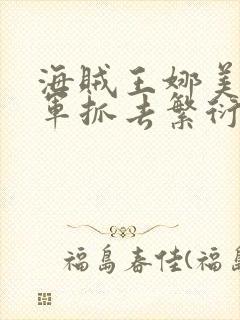 海贼王娜美
军抓去繁衍
福島春佳(福島